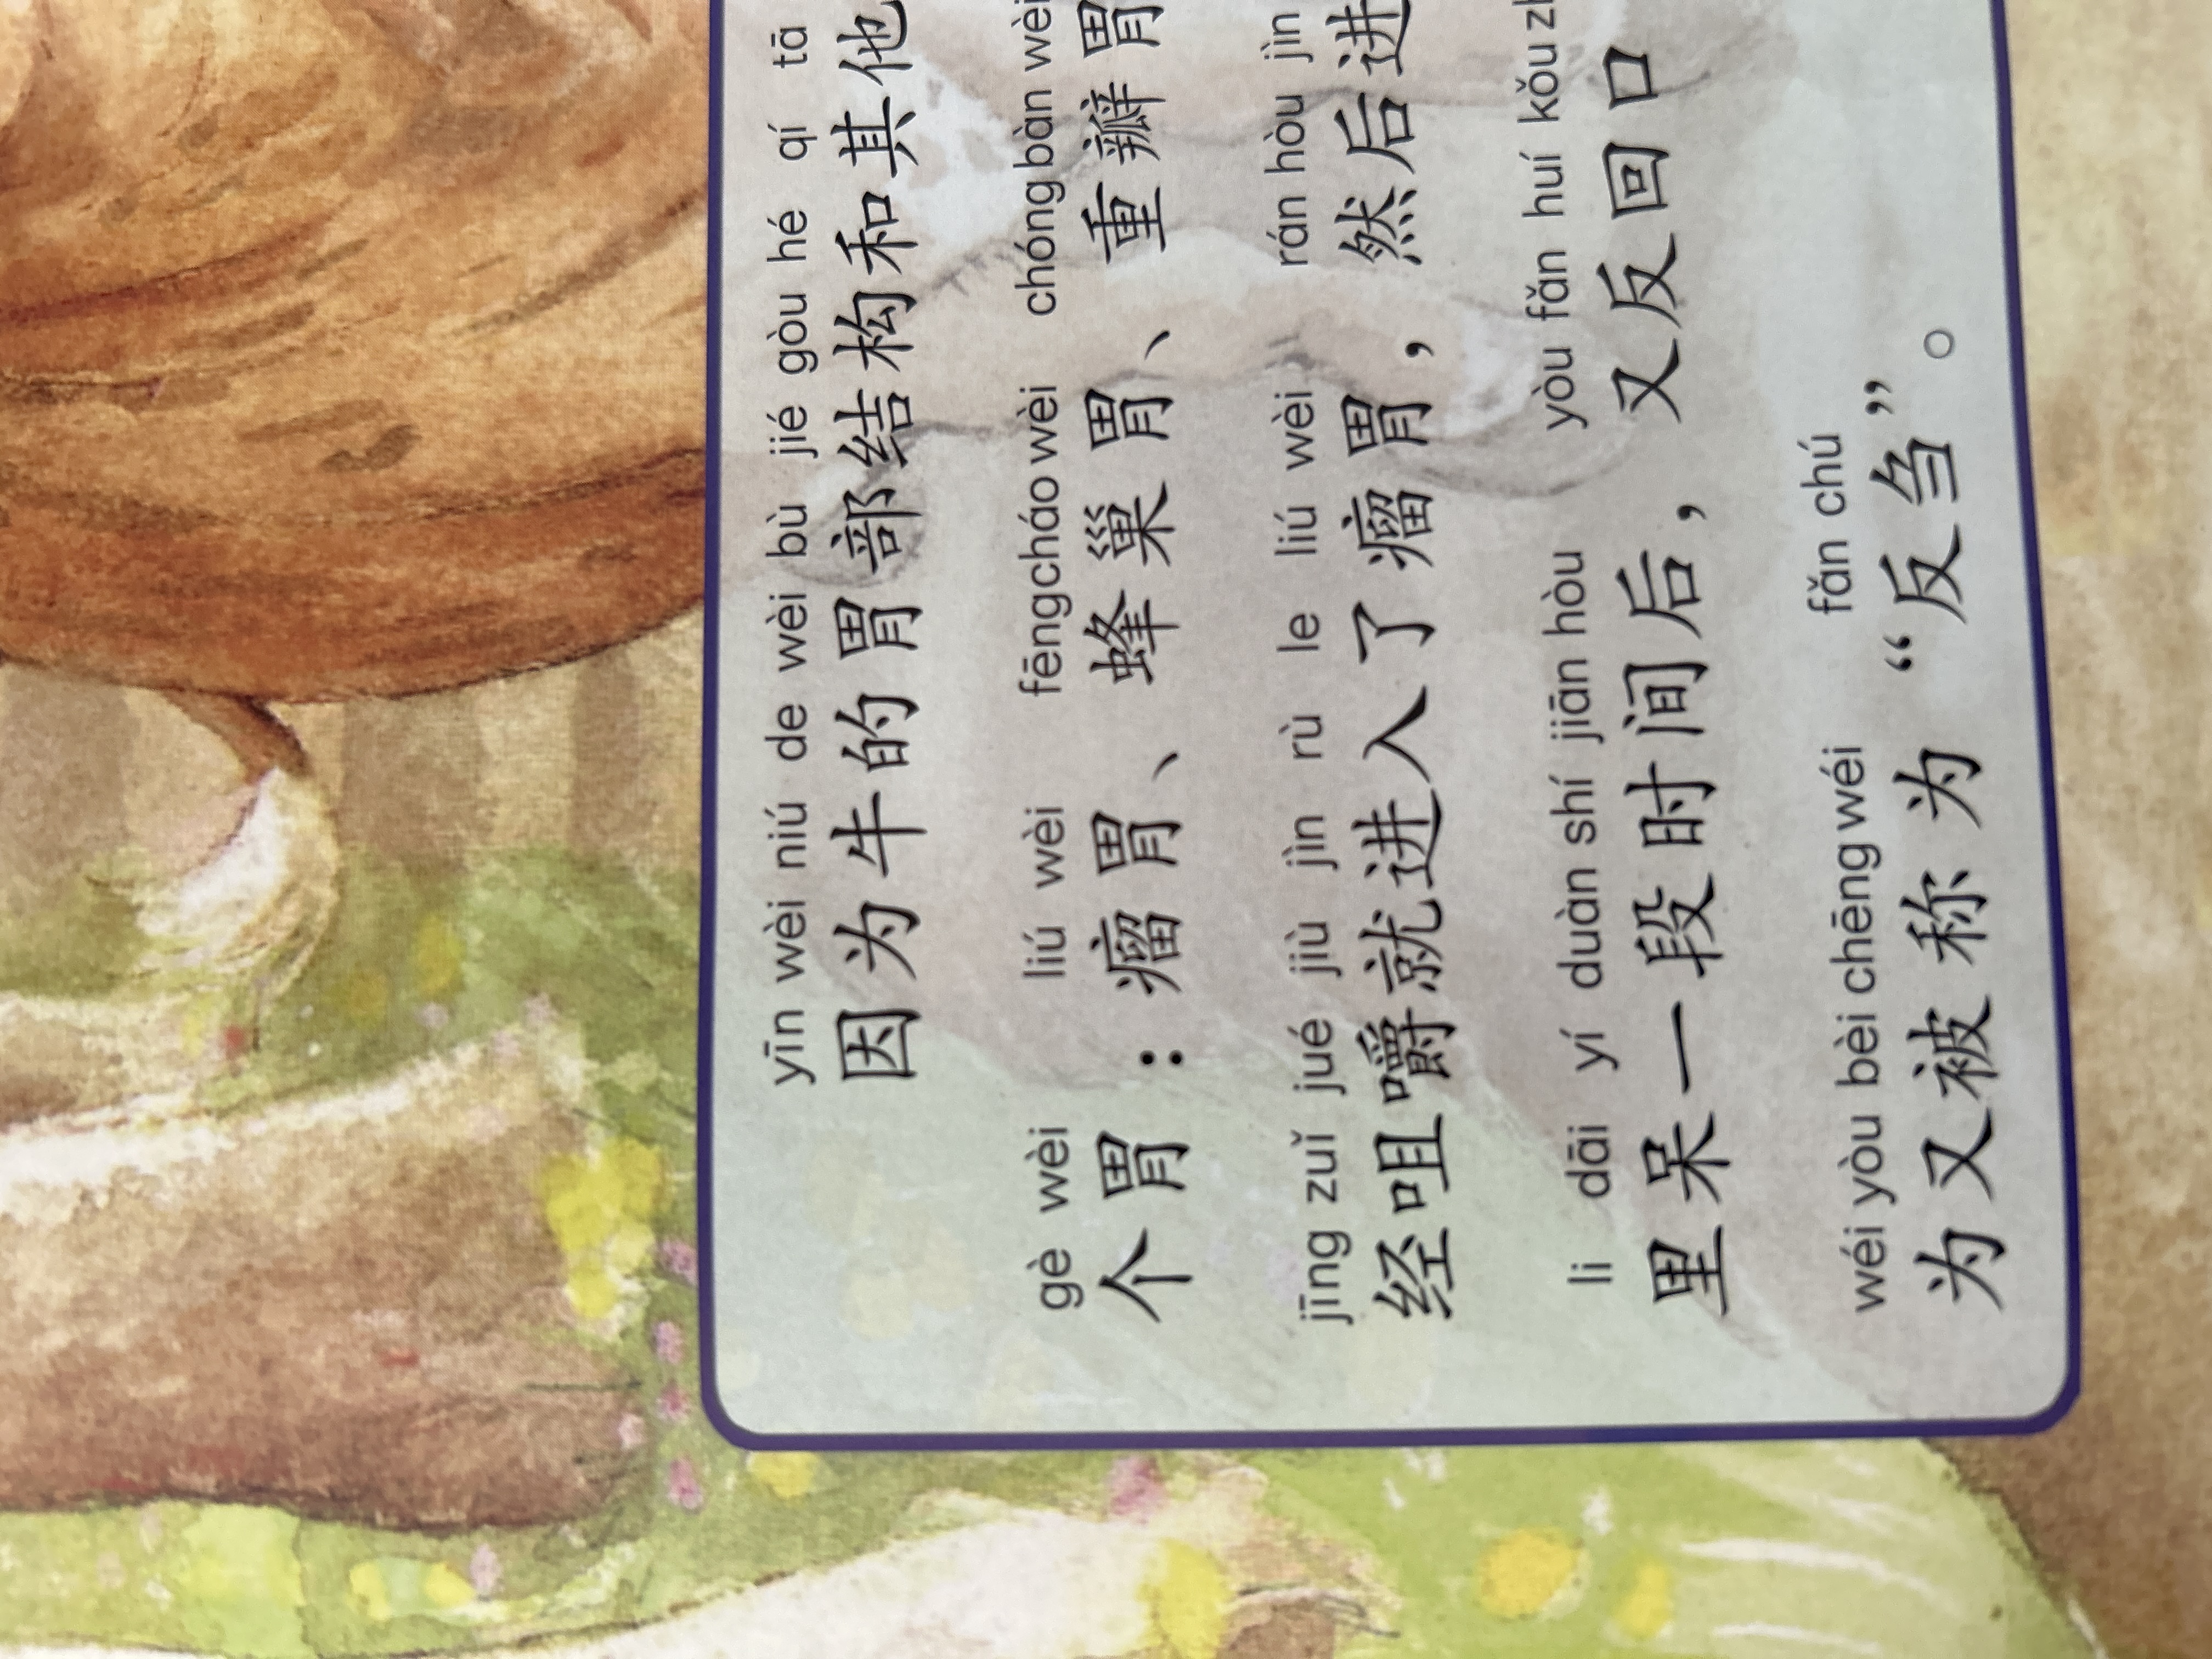 yīn wèi niú de wèi bù jié gòu hé qí tā
因为牛的胃部结构和其他
gè wèi liú wèi fēngcháo wèi chóngbàn wèi
个胃：瘤胃、蜂巢胃、重瓣胃
jīng zuǐ jué jiù jìn rù le liú wèi rán hòu jìn
经咀嚼就进入了瘤胃，然后进
li dāi yí duàn shí jiān hòu yòu fǎn huí kǒu
里呆一段时间后，又反回口
wéi yòu bèi chēng wéi fǎn chú
为又被称为“反刍”。